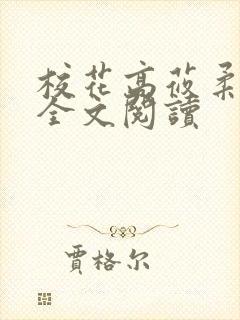 校花高莜柔
全文閱讀
賈格尔